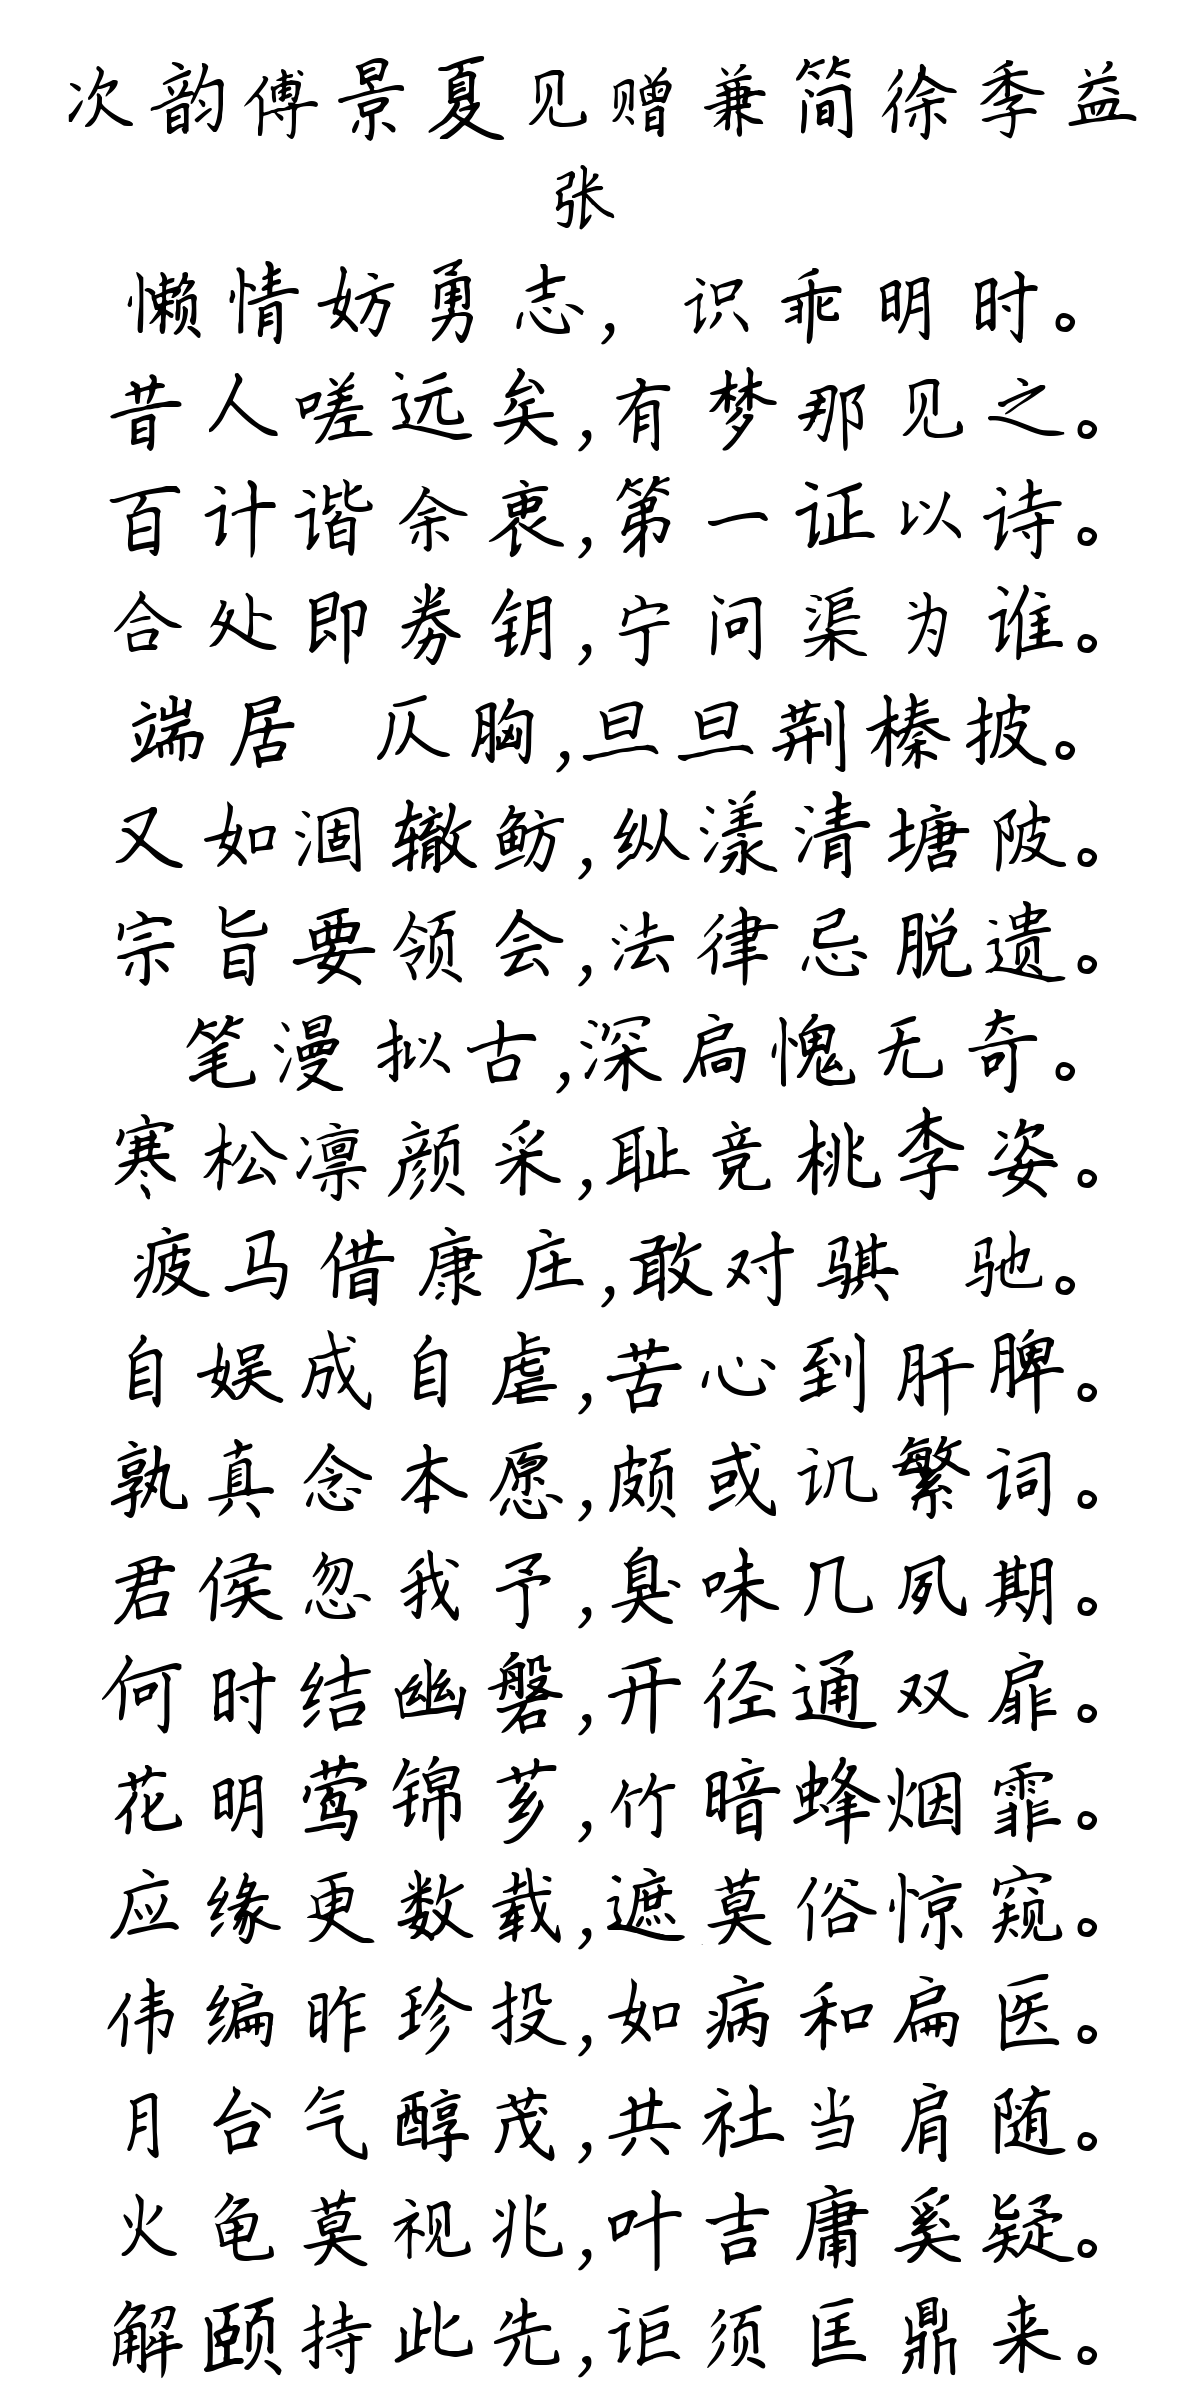 次韵傅景夏见赠兼简徐季益
张
懒情妨勇志，识乖明时。
昔人嗟远矣，有梦那见之。
百计谐余衷，第一证以诗。
合处即券钥，宁问渠为谁。
端居 仄胸，旦旦荆榛披。
又如涸辙鲂，纵漾清塘陂。
宗旨要领会，法律忌脱遗。
笔漫拟古，深扃愧无奇。
寒松凛颜采，耻竞桃李姿。
疲马借康庄，敢对骐 驰。
自娱成自虐，苦心到肝脾。
孰真念本愿，颇或讥繁词。
君侯忽我予，臭味几夙期。
何时结幽磐，开径通双扉。
花明莺锦芗，竹暗蜂烟霏。
应缘更数载，遮莫俗惊窥。
伟编昨珍投，如病和扁医。
月台气醇茂，共社当肩随。
火龟莫视兆，叶吉庸奚疑。
解颐持此先，讵须匡鼎来。